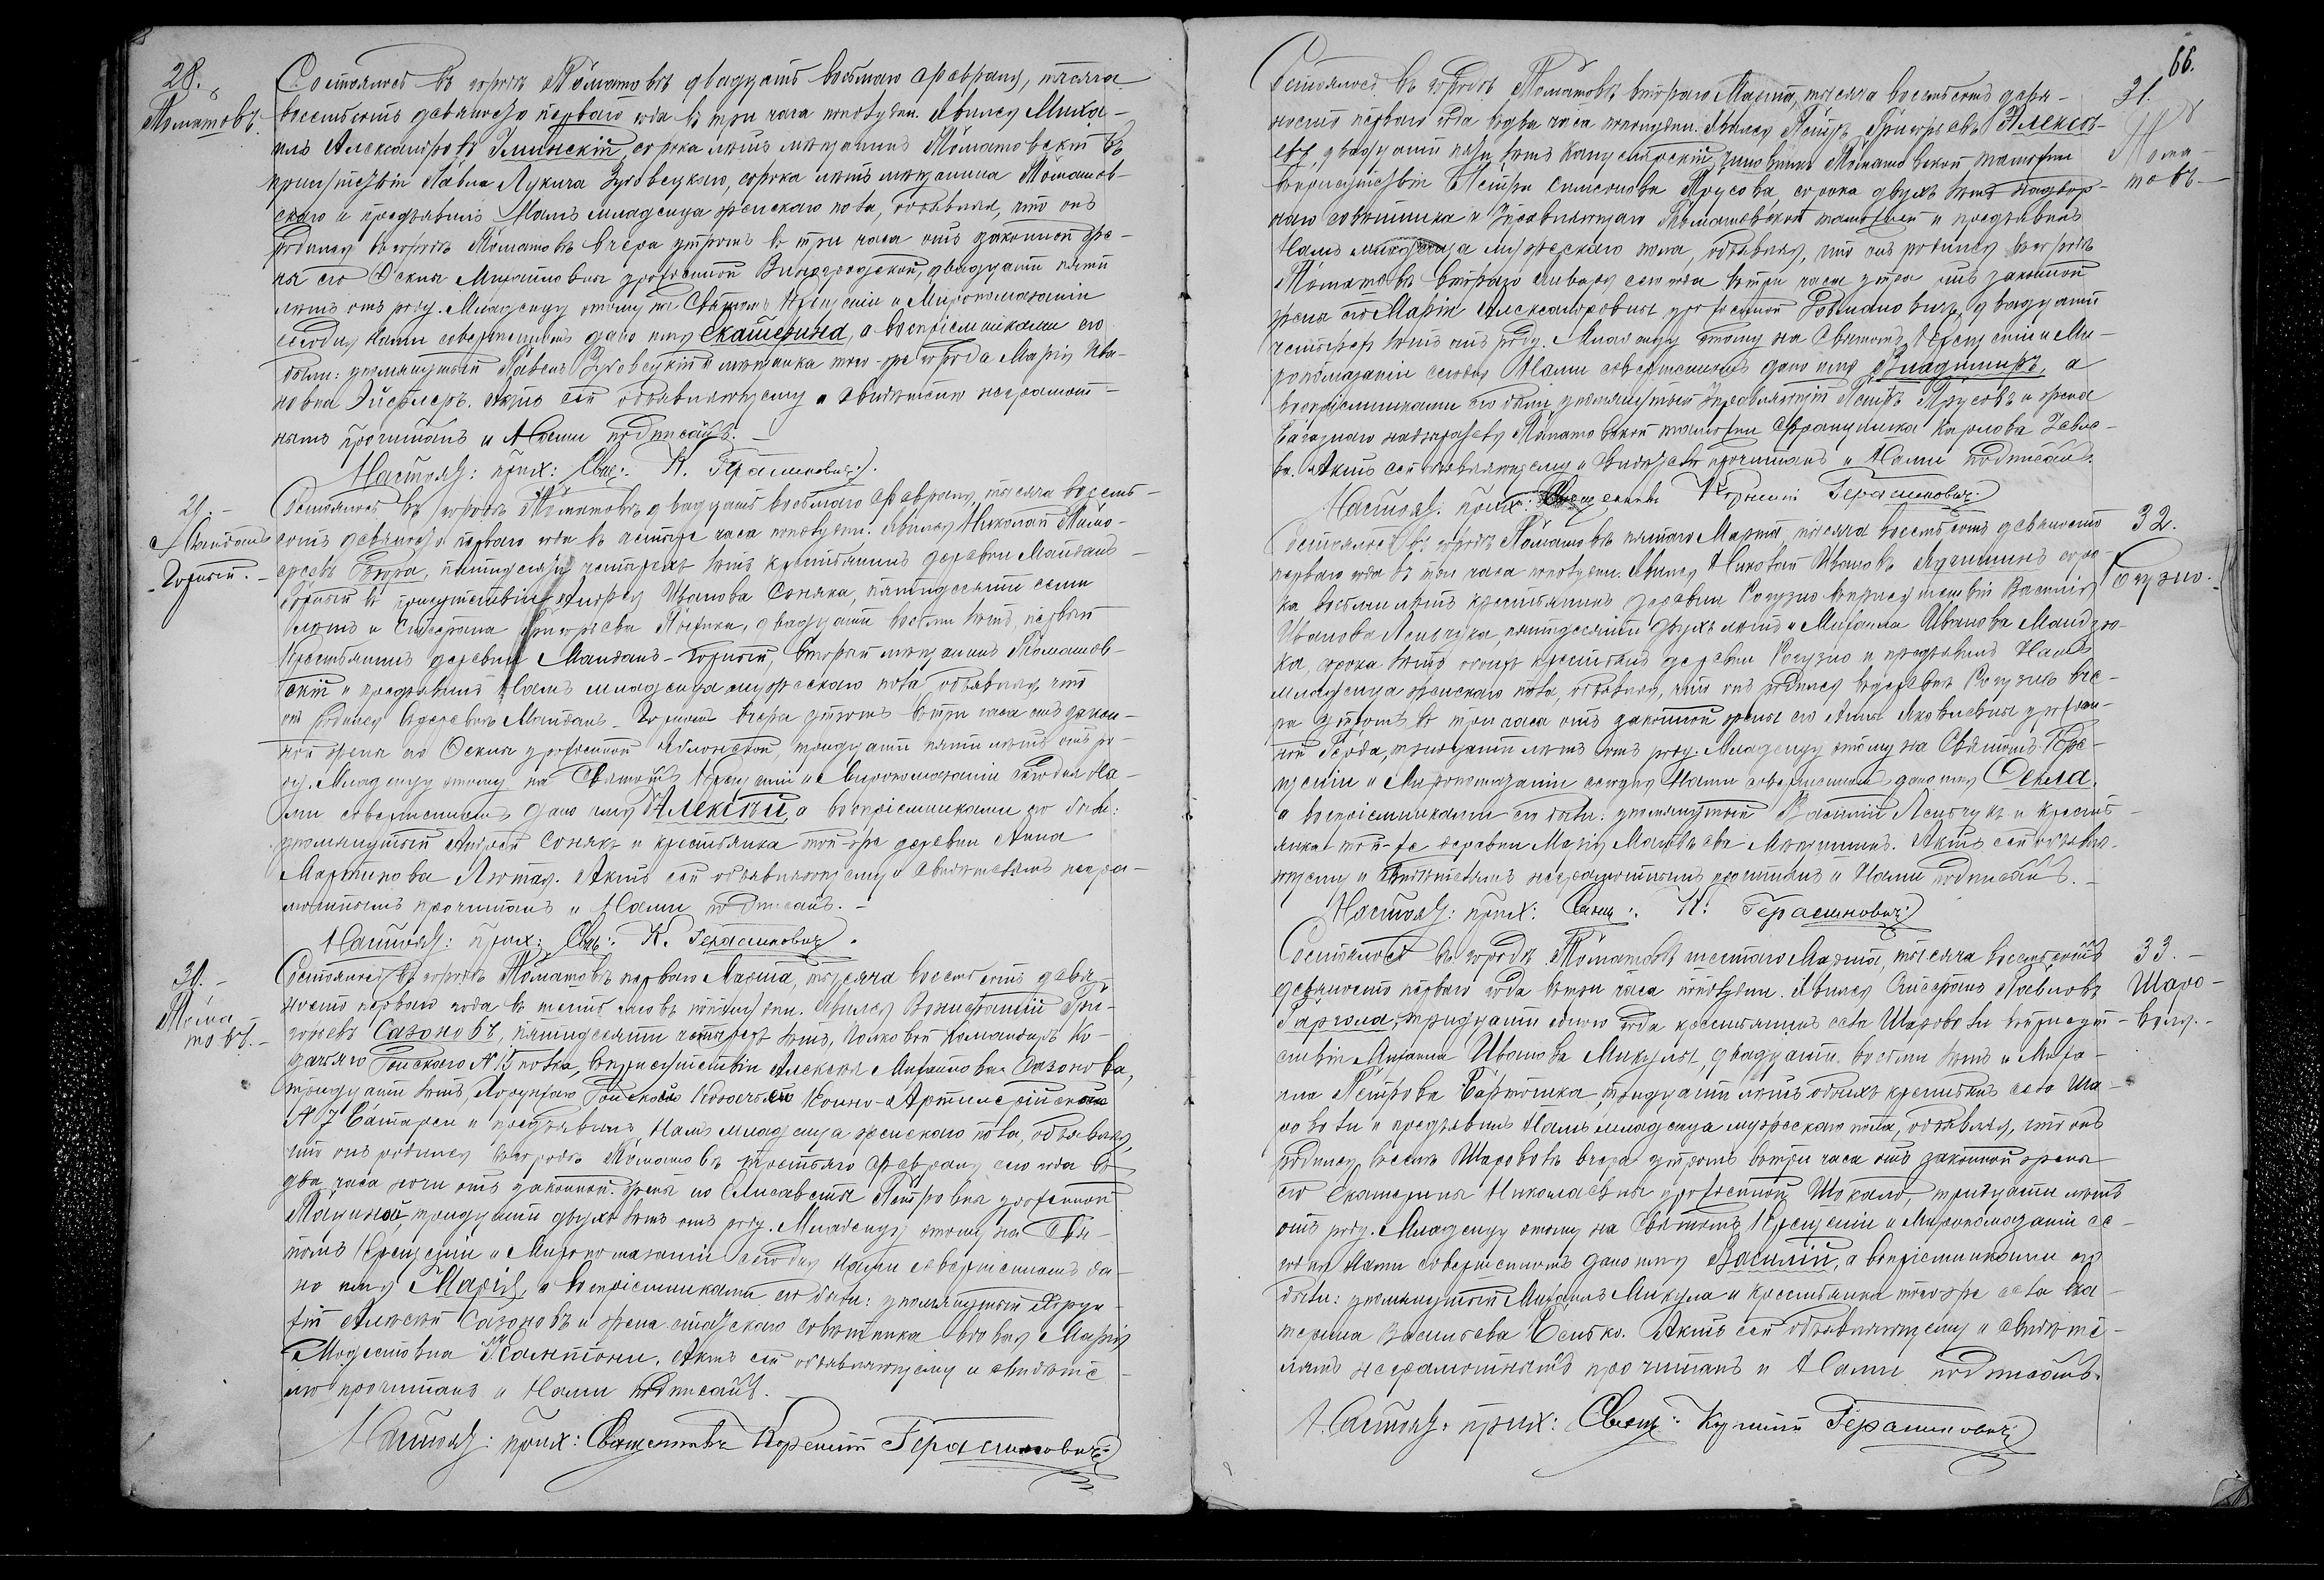 28.
Томашовъ.
Состоялось въ городѣ Томашовѣ двадцать восьмаго Февраля, тысяча
восемьсотъ девяносто перваго года въ три часа пополудни. Явился Миха-
илъ Александровъ Глинскій, сорока лѣтъ мѣщанинъ Томашовскій въ
присутствіи Павла Лукича Зубовецкаго, сорока лѣтъ мѣщанина Томашов-
скаго и предъявилъ Намъ младенца женскаго пола, объявляя, что онъ
родился въ городѣ Томашовѣ вчера утромъ въ три часа отъ законной же-
ны его Ѳеклы Михайловны урожденной двадцати пяти
лѣтъ отъ роду. Младенцу этому на Святомъ Крещеніи и Миропомазаніи
сегодня Нами совершенномъ дано имя Екатерина, а воспріемниками его
были: упомянутый Павелъ Зубовецкій и мѣщанка того-же города Марія Ива-
новна Актъ сей объявляющему и свидѣтелю неграмот-
нымъ прочитанъ и Нами подписанъ.
Настоят: прих: Свящ: К. Герасимовичъ.
29.
Майданъ
Горный.
Состоялось въ городѣ Томашовѣ двадцать восьмаго Февраля, тысяча восемь-
сотъ девяносто перваго года въ четыре часа пополудни. Явился Николай Тимо-
феевъ Бзора, пятидесяти четырехъ лѣтъ крестьянинъ деревни Майданъ-
Горный въ присутствіи Андрея Иванова Соняка, пятидесяти семи
лѣтъ и Стефана Григорьева двадцати восьми лѣтъ, первый
крестьянинъ деревни Майданъ-Горный, вторый мѣщанинъ Томашов-
скій и предъявилъ Намъ младенца мужескаго пола, объявляя, что
онъ родился въ деревнѣ Майданъ-Горномъ вчера утромъ въ три часа отъ закон-
ной жены его Ѳеклы урожденной Яблонской, тридцати пяти лѣтъ отъ ро-
ду. Младенцу этому на Святомъ Крещеніи и Миропомазаніи сегодня На-
ми совершенномъ дано имя Алексѣй, а воспріемниками его были:
упомянутый Андрей Сонякъ и крестьянка той-же деревни Анна
Мартинова Лютая. Актъ сей объявляющему и свидѣтелямъ негра-
мотнымъ прочитанъ и Нами подписанъ.
Настоят: прих: Свящ: К. Герасимовичъ.
30.
Тома-
товъ.
Состоялось въ городѣ Томашовѣ перваго Марта, тысяча восемьсотъ девя-
носто перваго года въ шесть часовъ пополудни. Явился Вонифатій Гри-
горьевъ Сазоновъ, пятидесяти четырехъ лѣтъ, Полковой Командиръ Ка-
зачьяго Донскаго N 15 полка, въ присутствіи Алексѣя Михайлова Сазонова,
тридцати лѣтъ, Хорунжаго Донской Казачьей Конно-Артилерійской
N 7 Батареи и предъявилъ Намъ младенца женскаго пола, объявляя,
что онъ родился въ городѣ Томашовѣ третьяго Февраля сего года въ
два часа ночи отъ законной жены его Елисаветы Петровны урожденной
тридцати двухъ лѣтъ отъ роду. Младенцу этому на Свя-
томъ Крещеніи и Миропомазаніи сегодня Нами совершенномъ да-
но имя Марія, а воспріемниками его были: упомянутый Хорун-
жій Алексѣй Сазоновъ и жена статскаго совѣтника вдова Марія
Модестовна Актъ сей объявляющему и свидѣте-
лю прочитанъ и Нами подписанъ.
Настоят: прих: Священникъ Корнилій Герасимовичъ
66.
31.
Тома-
товъ.
Состоялось въ городѣ Томашовѣ втораго Марта, тысяча восемьсотъ девя-
носто перваго года въ два часа пополудни. Явился Петръ Григорьевъ Алексѣ-
евъ, двадцати пяти лѣтъ Канцелярскій чиновникъ Томашовской таможни
въ присутствіи Петра Симеонова Трусова, сорока двухъ лѣтъ надвор-
наго совѣтника и Управляющаго Томашовской таможней и предъявилъ
Намъ младенца мужескаго пола, объявляя, что онъ родился въ городѣ
Томашовѣ втораго Января сего года въ три часа утра отъ законной
жены его Маріи Александровны урожденной двадцати
четырехъ лѣтъ отъ роду. Младенцу этому на Святомъ Крещеніи и Ми-
ропомазаніи сегодня Нами совершенномъ дано имя Владиміръ, а
воспріемниками его были: упомянутый Управляющій Петръ Трусовъ и жена
багажнаго надзирателя Томашовской таможни Францишка Карлова
Актъ сей объявляющему и свидѣтелю прочитанъ и Нами подписанъ.
Настоят: прих: Священникъ Корнилій Герасимовичъ
32.
Рогузно.
Состоялось въ городѣ Томашовѣ пятаго Марта, тысяча восемьсотъ девяносто
перваго года въ три часа пополудни. Явился Николай Ивановъ соро-
ка восьми лѣтъ крестьянинъ деревни Рогузно въ присутствіи Василія
Иванова Лепчука, пятидесяти двухъ лѣтъ и Михаила Иванова Мандзю-
ка, сорока лѣтъ обоихъ крестьянъ деревни Рогузно и предъявилъ Намъ
младенца женскаго пола, объявляя, что онъ родился въ деревнѣ Рогузнѣ вче-
ра утромъ въ три часа отъ законной жены его Анны Яковлевны урожден-
ной тридцати лѣтъ отъ роду. Младенцу этому на Святомъ Кре-
щеніи и Миропомазаніи сегодня Нами совершенномъ дано имя Ѳекла,
а воспріемниками его были: упомянутый Василій Лепчукъ и кресть-
янка той-же деревни Марія Матвѣева Актъ сей объявля-
ющему и свидѣтелямъ неграмотнымъ прочитанъ и Нами подписанъ.
Настоят: прих: Свящ: К: Герасимовичъ
33.
Шаро-
воля.
Состоялось въ городѣ Томашовѣ шестаго Марта, тысяча восемьсотъ
девяносто перваго года въ три часа пополудни. Явился Стефанъ Павловъ
Гаргола, тридцати одного года крестьянинъ села Шароволи въ присут-
ствіи Михаила Иванова Микулы, двадцати восьми лѣтъ и Миха-
ила Петрова тридцати лѣтъ обоихъ крестьянъ села Ша-
роволи и предъявилъ Намъ младенца мужескаго пола, объявляя, что онъ
родился въ селѣ Шароволѣ вчера утромъ въ три часа отъ законной жены
его Екатерины Николаевны урожденной Шокало, тридцати лѣтъ
отъ роду. Младенцу этому на Святомъ Крещеніи и Миропомазаніи се-
годня Нами совершенномъ дано имя Василій, а воспріемниками его
были: упомянутый Михаилъ Микула и крестьянка того-же села Ека-
терина Васильева Актъ сей объявляющему и свидѣте-
лямъ неграмотнымъ прочитанъ и Нами подписанъ.
Настоят: прих: Свящ: Корнилій Герасимовичъ